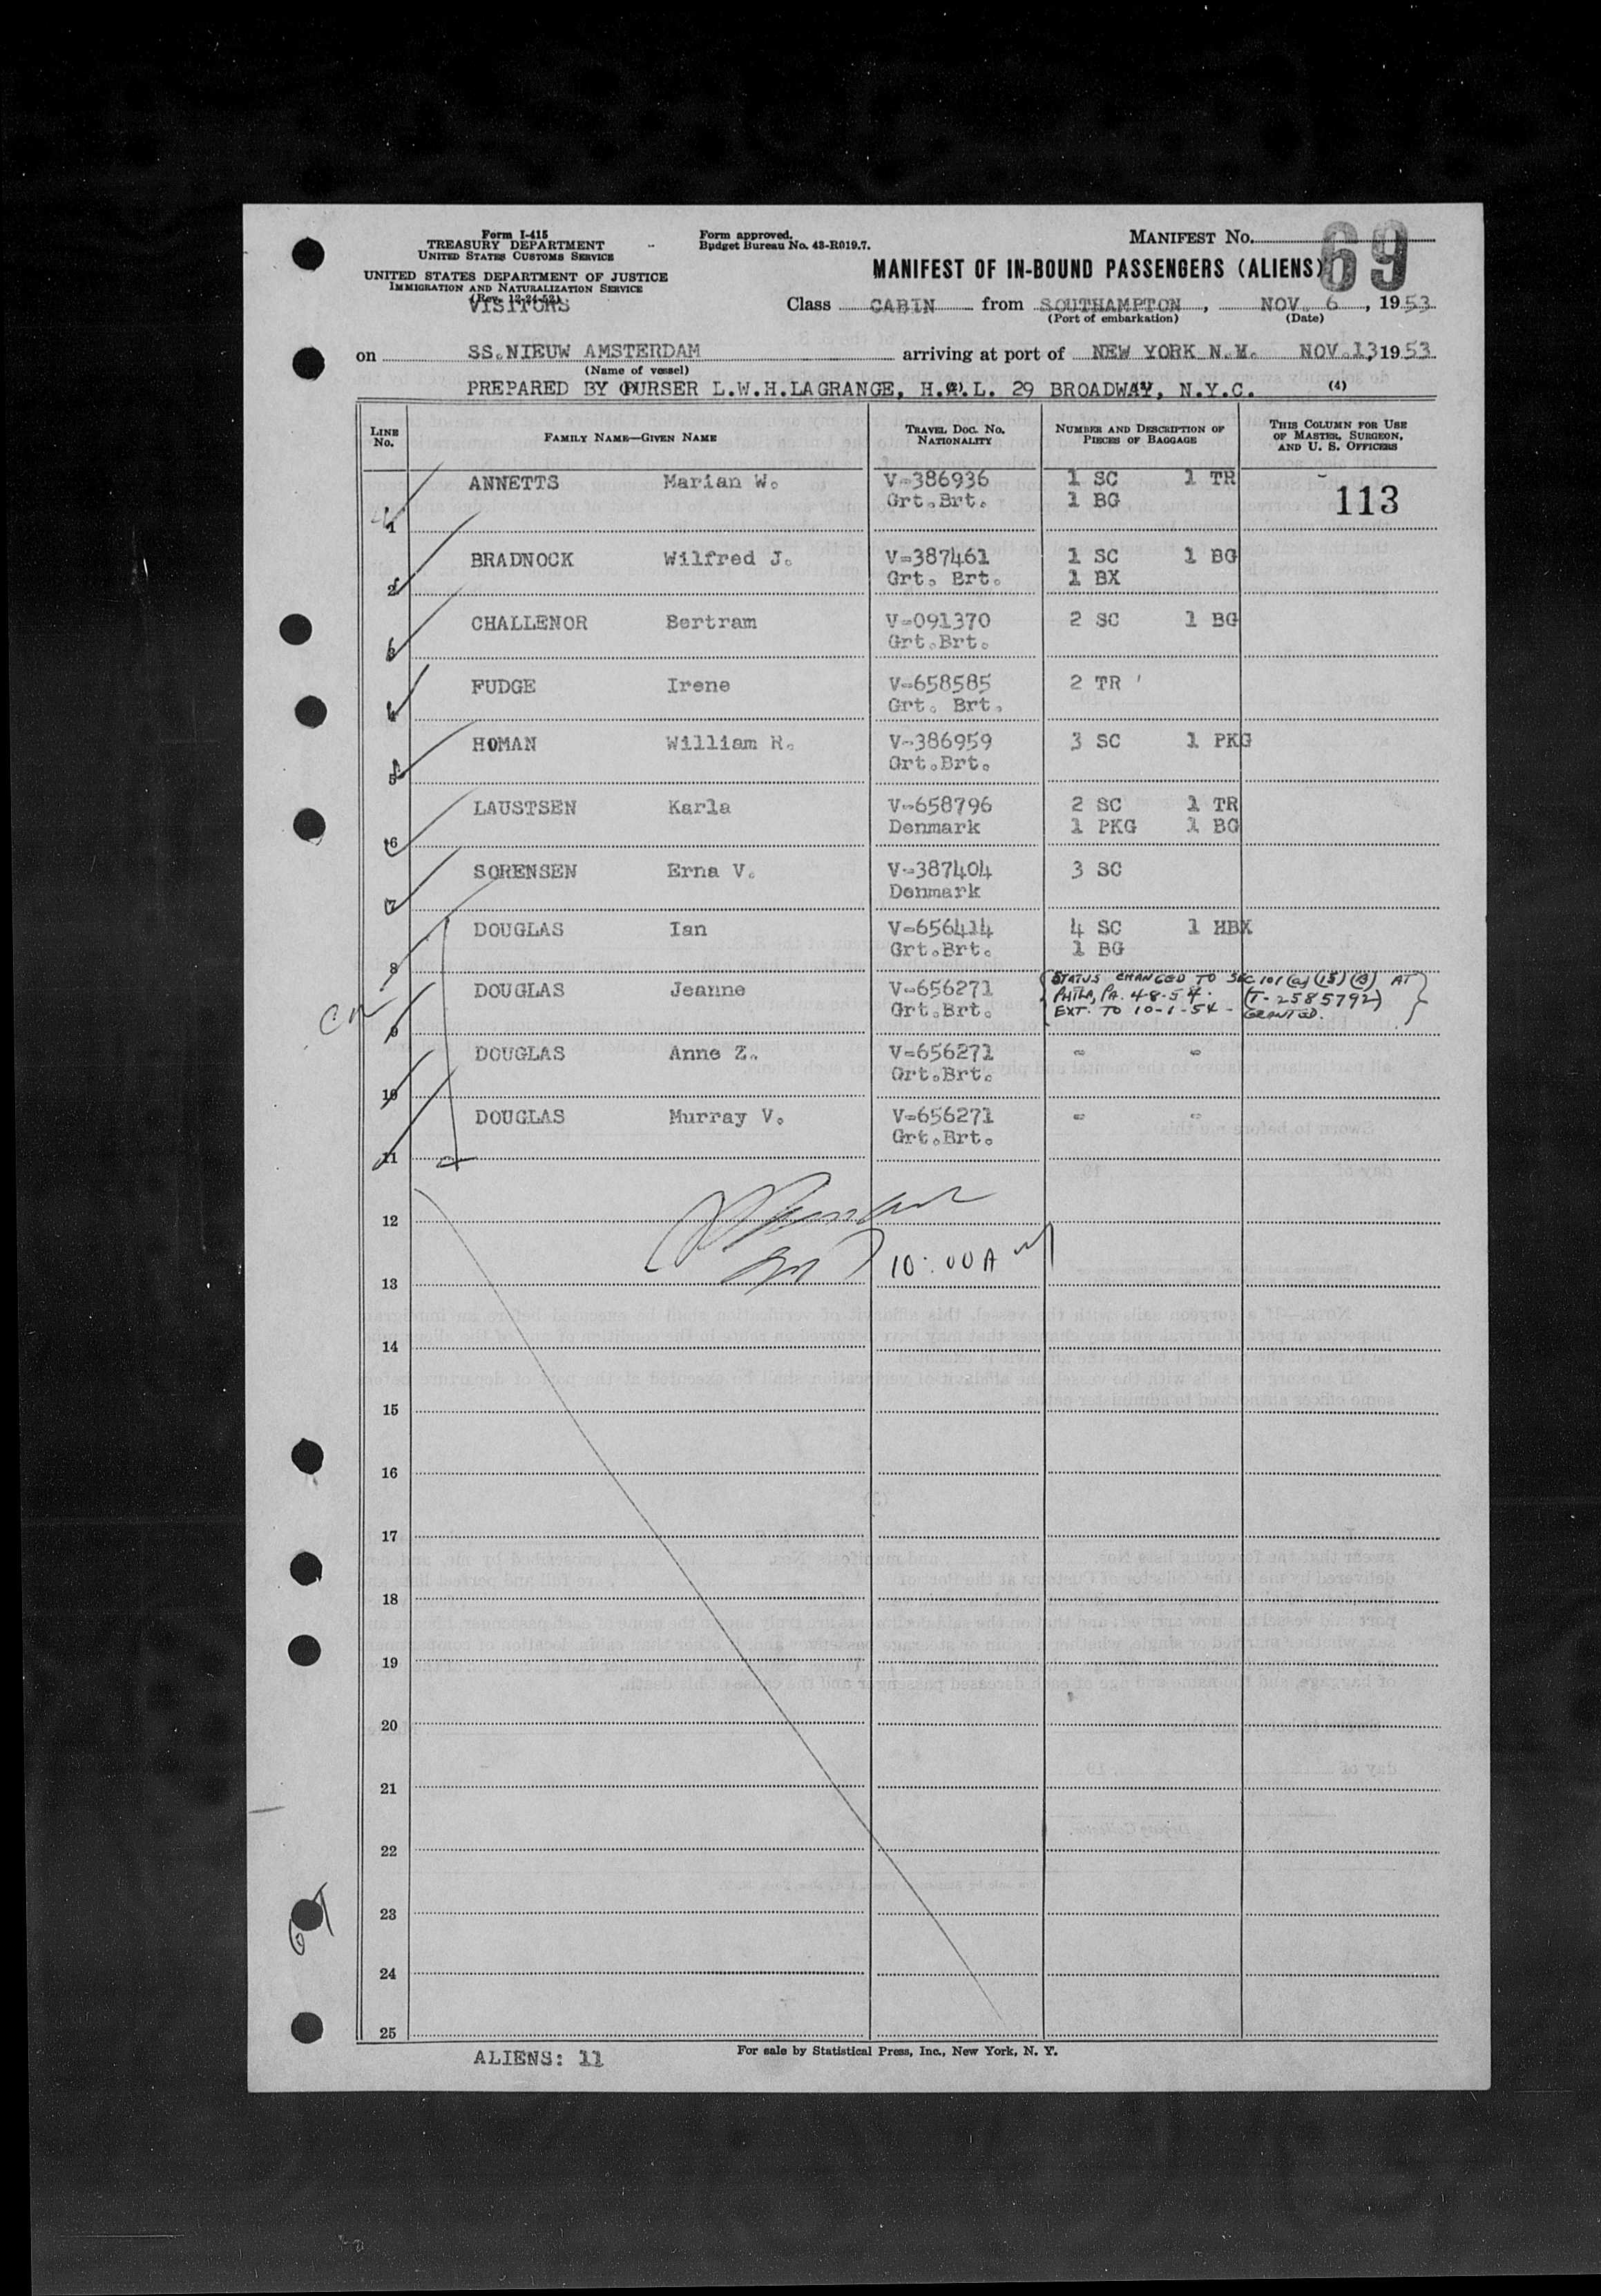 Form I-415
TREASURY DEPARTMENT
UNITED STATES CUSTOMS SERVICE
UNITED STATES DEPARTMENT OF JUSTICE
IMMIGRATION AND NATURALIZATION SERVICE
(Rev. 12-24-52)
VISITORS
Form approved.
Budget Bureau No. 43-R019.7.
MANIFEST NO. 69
MANIFEST OF IN-BOUND PASSENGERS (ALIENS)
Class CABIN from SOUTHAMPTON, NOV. 6, 1953
(Port of embarkation) (Date)
on SS.NIEUW AMSTERDAM arriving at port of NEW YORK N.Y. NOV.13,1953
(Name of vessel)
PREPARED BY PURSER L.W.H.LAGRANGE, H.A.L. 29 BROADWAY, N.Y.C. (4)
LINE NO. FAMILY NAME—GIVEN NAME TRAVEL DOC. NO. NATIONALITY NUMBER AND DESCRIPTION OF PIECES OF BAGGAGE THIS COLUMN FOR USE OF MASTER, SURGEON, AND U. S. OFFICERS
113
1 ANNETTS Marian W. V-386936 1 SC 1 TR
Grt.Brt. 1 BG
2 BRADNOCK Wilfred J. V-387461 1 SC 1 BG
Grt. Brt. 1 BX
3 CHALLENOR Bertram V-091370 2 SC 1 BG
Grt.Brt.
4 FUDGE Irene V-658585 2 TR
Grt. Brt.
5 HOMAN William R. V-386959 3 SC 1 PKG
Grt.Brt.
6 LAUSTSEN Karla V-658796 2 SC 1 TR
Denmark 1 PKG 1 BG
7 SORENSEN Erna V. V-387404 3 SC
Denmark
8 DOUGLAS Ian V-656414 4 SC 1 HBX
Grt.Brt. 1 BG
9 DOUGLAS Jeanne V-656271
Grt.Brt.
STATUS CHANGED TO SEC 101 (a) (15) (B) AT
PHILA, PA. 4-8-54. (T-2585792)
EXT. TO 10-1-54 - GRANTED.
10 DOUGLAS Anne Z. V-656271 - -
Grt.Brt.
11 DOUGLAS Murray V. V-656271 - -
Grt.Brt.
12
10:00 A M
13
14
15
16
17
18
19
20
21
22
23
24
25
ALIENS: 11
For sale by Statistical Press, Inc., New York, N. Y.